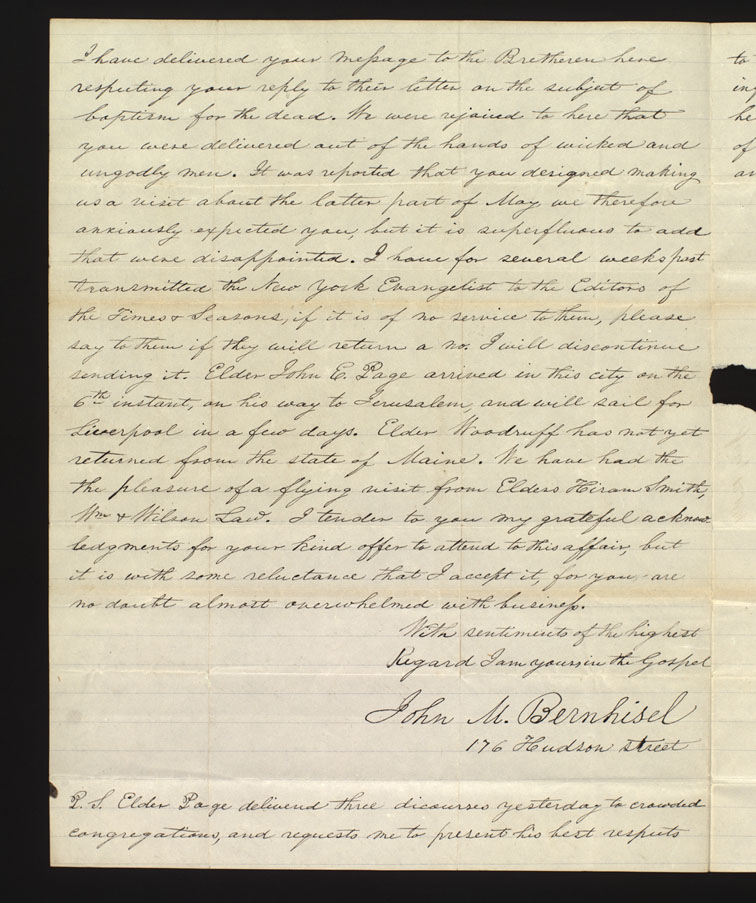 I have delivered your message to the Bretheren here
respecting your reply to their letter on the subject of
baptism for the dead. We were rejoiced to here that
you were delivered out of the hands of wicked and
ungodly men. It was reported that you designed making
us a visit about the latter part of May, we therefore
anxiously expected you, but it is superfluous to add
that were disappointed. I have for several weeks past
transmitted the New York Evangelist to the Editors of
the Times & Seasons, if it is of no service to them, please
say to them if they will return a no. I will discontinue
sending it. Elder John E. Page arrived in this city on the
6th instant, on his way to Jerusalem, and will sail for
Liverpool in a few days. Elder Woodruff has not yet
returned from the state of Maine. We have had the
the pleasure of a flying visit from Elders Hiram Smith,
Wm & Wilson Law. I tender to you my grateful acknow
ledgments for your kind offer to attend to this affair, but
it is with some reluctance that I accept it, for you are
no doubt almost overwhelmed with business.
With sentiments of the highest
Regard I am yours in the Gospel
John M. Bernhisel
176 Hudson street
P. S. Elder Page delivered three dicourses yesterday to crowded
congregations, and requests me to present his best respects
to
ing
he
of
an